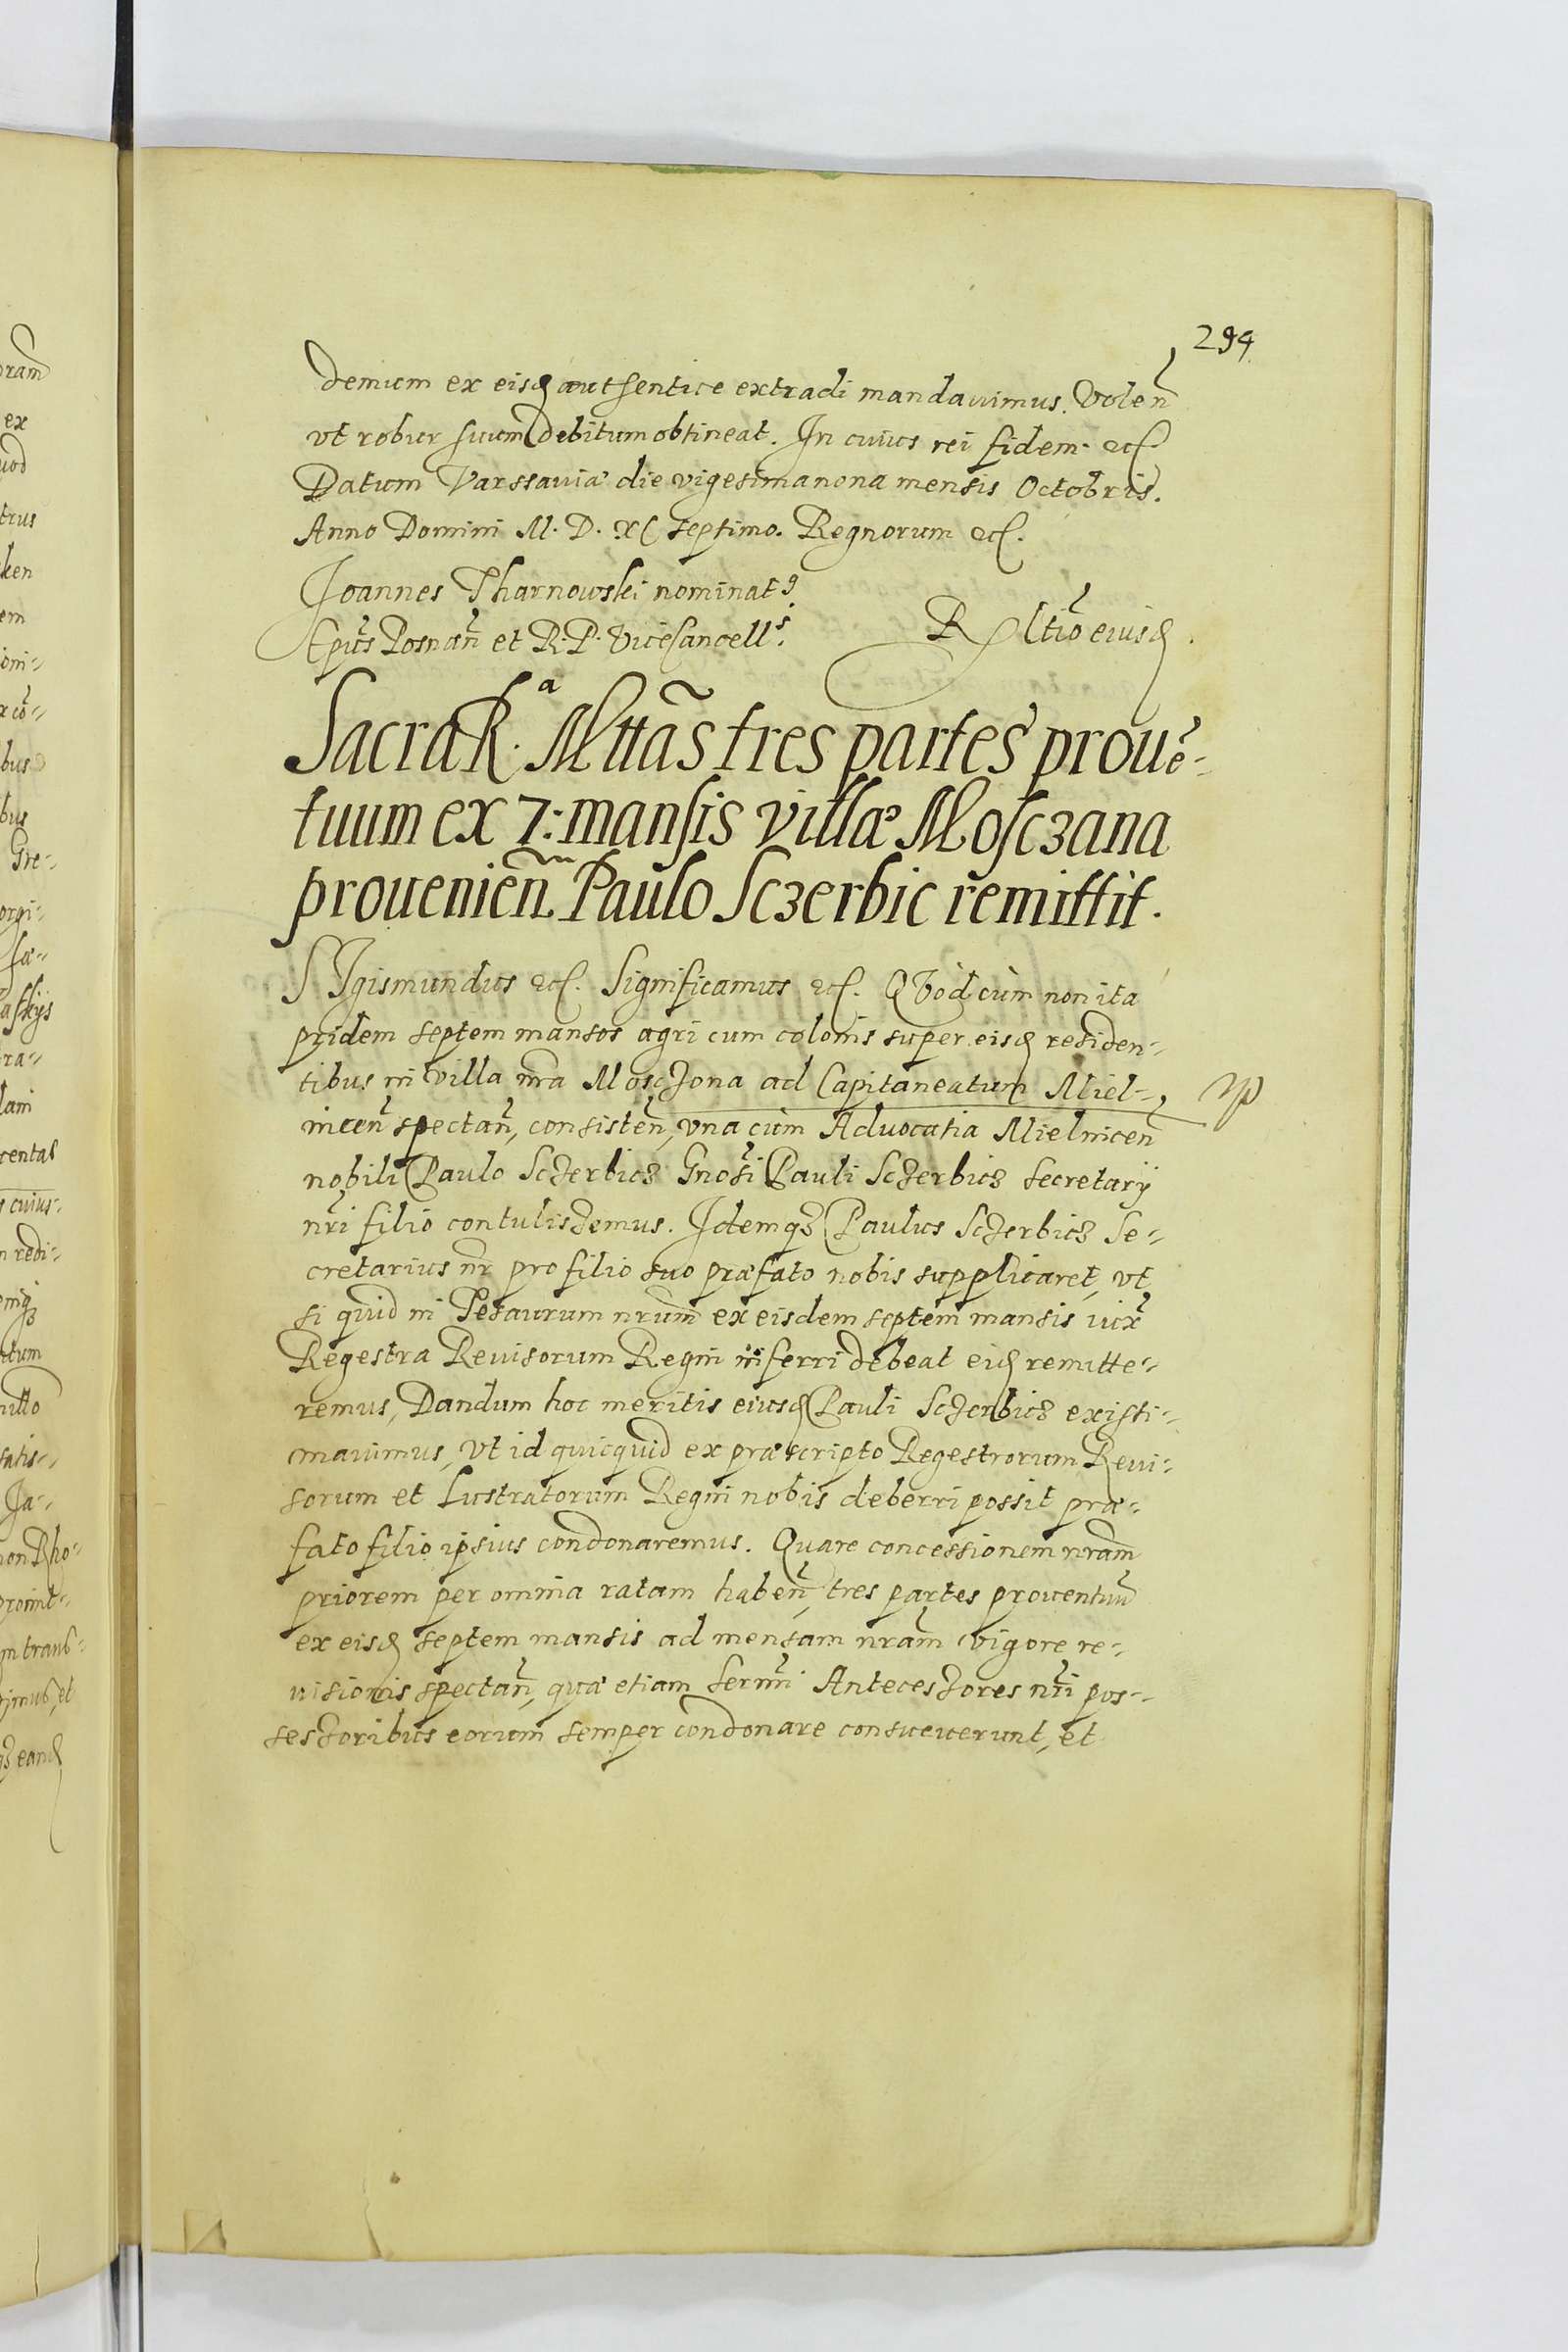 294
demum ex eisd autsentice extradi mandauimus. Volen̄
vt robur suum debitum obtineat. In cuius rei fidem. etc
Datum Varssauiæ die vigesimanona mensis Octobris.
Anno Domini M. D. XC septimo. Regnorum etc.
Joannes Tharnowski nominat9
Epūs Posnan̄ et R. P. ViceCancells.
R ltio eiusd.
Sacra R.a Mttās tres partes prouē-
tuum ex 7: mansis villæ Mosczana
prouenien̄ Paulo Sczerbic remittit.
SIgismundus etc. Significamus etc. QVòd cùm non ita
pridem septem mansos agri cum colonis super eisd residen-
tibus in villa nrā Moszczona ad Capitaneatum Miel-
nicen̄ spectan̄, consisten̄, vna cùm Aduocatia Mielnicen̄
nobili Paulo Sczerbicz Gnosi Pauli Sczerbicz Secretarÿ
nrī filio contulissemus. Idemqz Paulus Sczerbicz Se-
cretarius nr̄ pro filio suo præfato nobis supplicaret, vt
si quid in Tesaurum nrum̄ ex eisdem septem mansis iux̄
Regestra Reuisorum Regni inferri debeat eid remitte-
remus, Dandum hoc meritis eiusd Pauli Sczerbicz existi-
mauimus, vt id quicquid ex præscripto Regestrorum Reui-
sorum et Lustratorum Regni nobis deberri possit præ-
fato filio ipsius condonaremus. Quare concessionem nram̄
priorem per omnia ratam haben̄, tres partes prouentuū
ex eisd septem mansis ad mensam nram̄ vigore re-
uisionis spectan̄, quæ etiam Sermi Antecessores nrī pos-
sessoribus eorum semper condonare consueuerunt, et